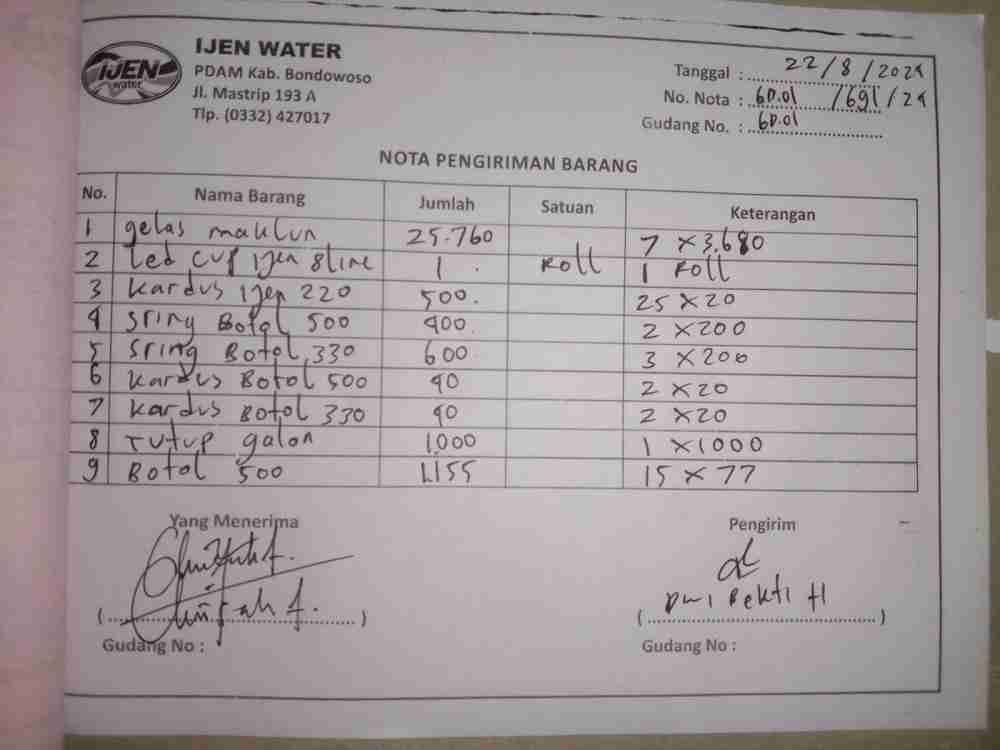 IJEN
water
IJEN WATER
PDAM Kab. Bondowoso
Jl. Mastrip 193 A
Tlp. (0332) 427017
Tanggal : 22/8/2024
No. Nota : 60.01 /691/24
Gudang No. : 60.01
NOTA PENGIRIMAN BARANG
No. Nama Barang Jumlah Satuan Keterangan
1 gelas maklun 25.760 7 x 3.680
2 Led cup ijen 8 line 1 . Roll 1 Roll
3 kardus ijen 220 500. 25 x 20
4 sring Botol 500 400. 2 x 200
5 sring Botol 330 600 3 x 200
6 kardus Botol 500 40 2 x 20
7 kardus Botol 330 40 2 x 20
8 Tutup galon 1.000 1 x 1000
9 Botol 500 1.155 15 x 77
Yang Menerima Pengirim
Dwi Bekti H
Gudang No : Gudang No :